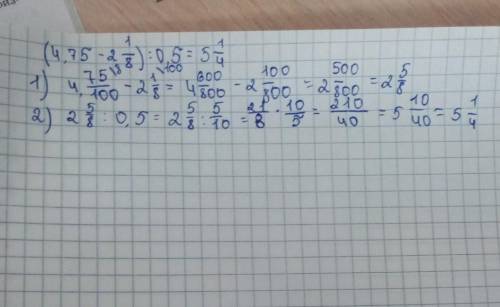 (4,75 - 2 1/8) : 0,5 = 5 1/4
1) 4, 75/100 \8 - 2 1/8 \100 = 4 600/800 - 2 100/800 = 2 500/800 = 2 5/8
2) 2 5/8 : 0,5 = 2 5/8 : 5/10 = 21/8 · 10/5 = 210/40 = 5 10/40 = 5 1/4